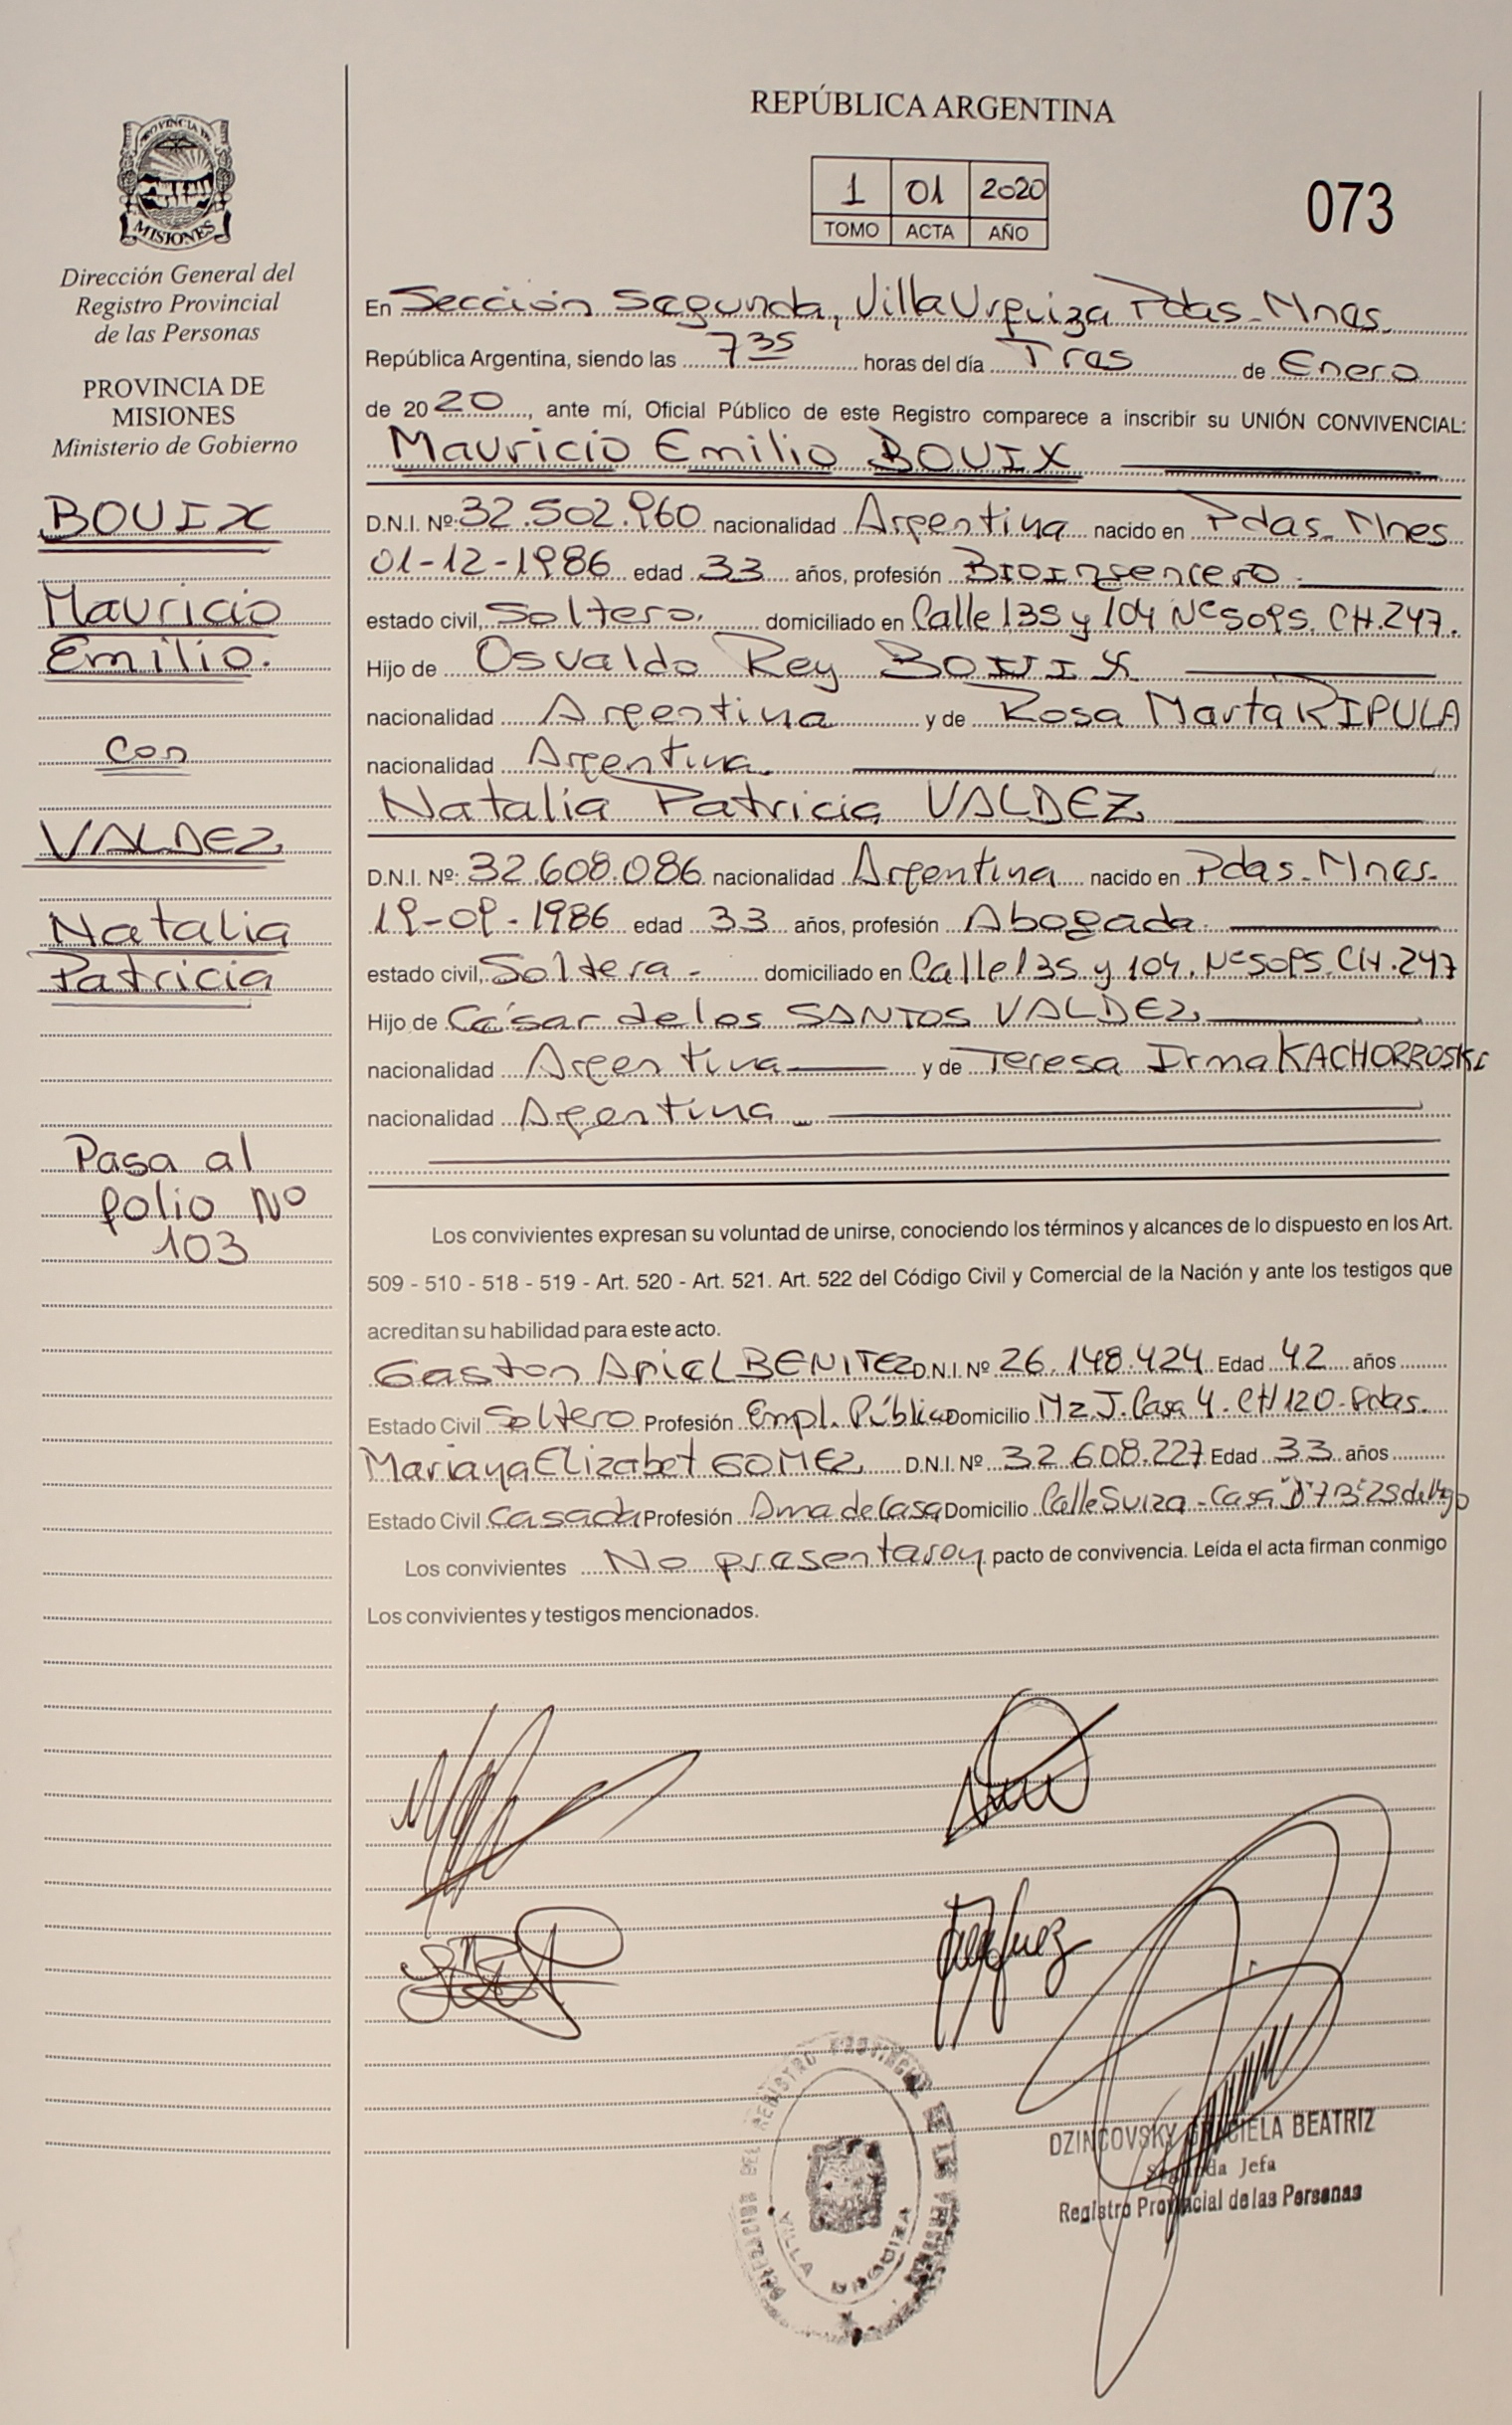 PROVINCIA DE
MISIONES
Dirección General del
Registro Provincial
de las Personas
PROVINCIA DE
MISIONES
Ministerio de Gobierno
BOUIX
Mauricio
Emilio.
Con
VALDEZ
Natalia
Patricia
Pasa al
folio Nº
103
REPÚBLICA ARGENTINA
1 01 2020
TOMO ACTA AÑO
073
En Sección Segunda, Villa Urquiza Pdas-Mnes.
República Argentina, siendo las 7 35 horas del día Tres de Enero
de 2020, ante mí, Oficial Público de este Registro comparece a inscribir su UNIÓN CONVIVENCIAL:
Mauricio Emilio BOUIX
D.N.I. Nº 32.502.960 nacionalidad Argentina nacido en Pdas-Mnes
01-12-1986 edad 33 años, profesión Bioingeniero
estado civil, Soltero. domiciliado en Calle 135 y 104 Nº 5095. CH.247.
Hijo de Osvaldo Rey BOUIX
nacionalidad Argentina y de Rosa Marta RIPULA
nacionalidad Argentina.
Natalia Patricia VALDEZ
D.N.I. Nº: 32.608.086 nacionalidad Argentina nacido en Pdas-Mnes-
19-09-1986 edad 33 años, profesión Abogada
estado civil, Soltera - domiciliado en Calle 135 y 104. Nº 5095. CH.247
Hijo de César de los SANTOS VALDEZ
nacionalidad Argentina y de Teresa Irma KACHORROSKI
nacionalidad Argentina
Los convivientes expresan su voluntad de unirse, conociendo los términos y alcances de lo dispuesto en los Art.
509 - 510 - 518 - 519 - Art. 520 - Art. 521. Art. 522 del Código Civil y Comercial de la Nación y ante los testigos que
acreditan su habilidad para este acto.
Gaston Ariel BENITEZ D.N.I. Nº 26.148.424 Edad 42 años
Estado Civil Soltero Profesión Empl. Público Domicilio Mz J. Casa 4. CH 120-Pdas.
Mariana Elizabet GOMEZ D.N.I. Nº 32.608.227 Edad 33 años
Estado Civil Casada Profesión Ama de Casa Domicilio Calle Suiza - Casa
Los convivientes No presentaron pacto de convivencia. Leída el acta firman conmigo
Los convivientes y testigos mencionados.
DELEGACION DEL REGISTRO PROVINCIAL DE LAS PERSONAS
VILLA URQUIZA
DZINCOVSKY GRACIELA BEATRIZ
Segunda Jefa
Registro Provincial de las Personas